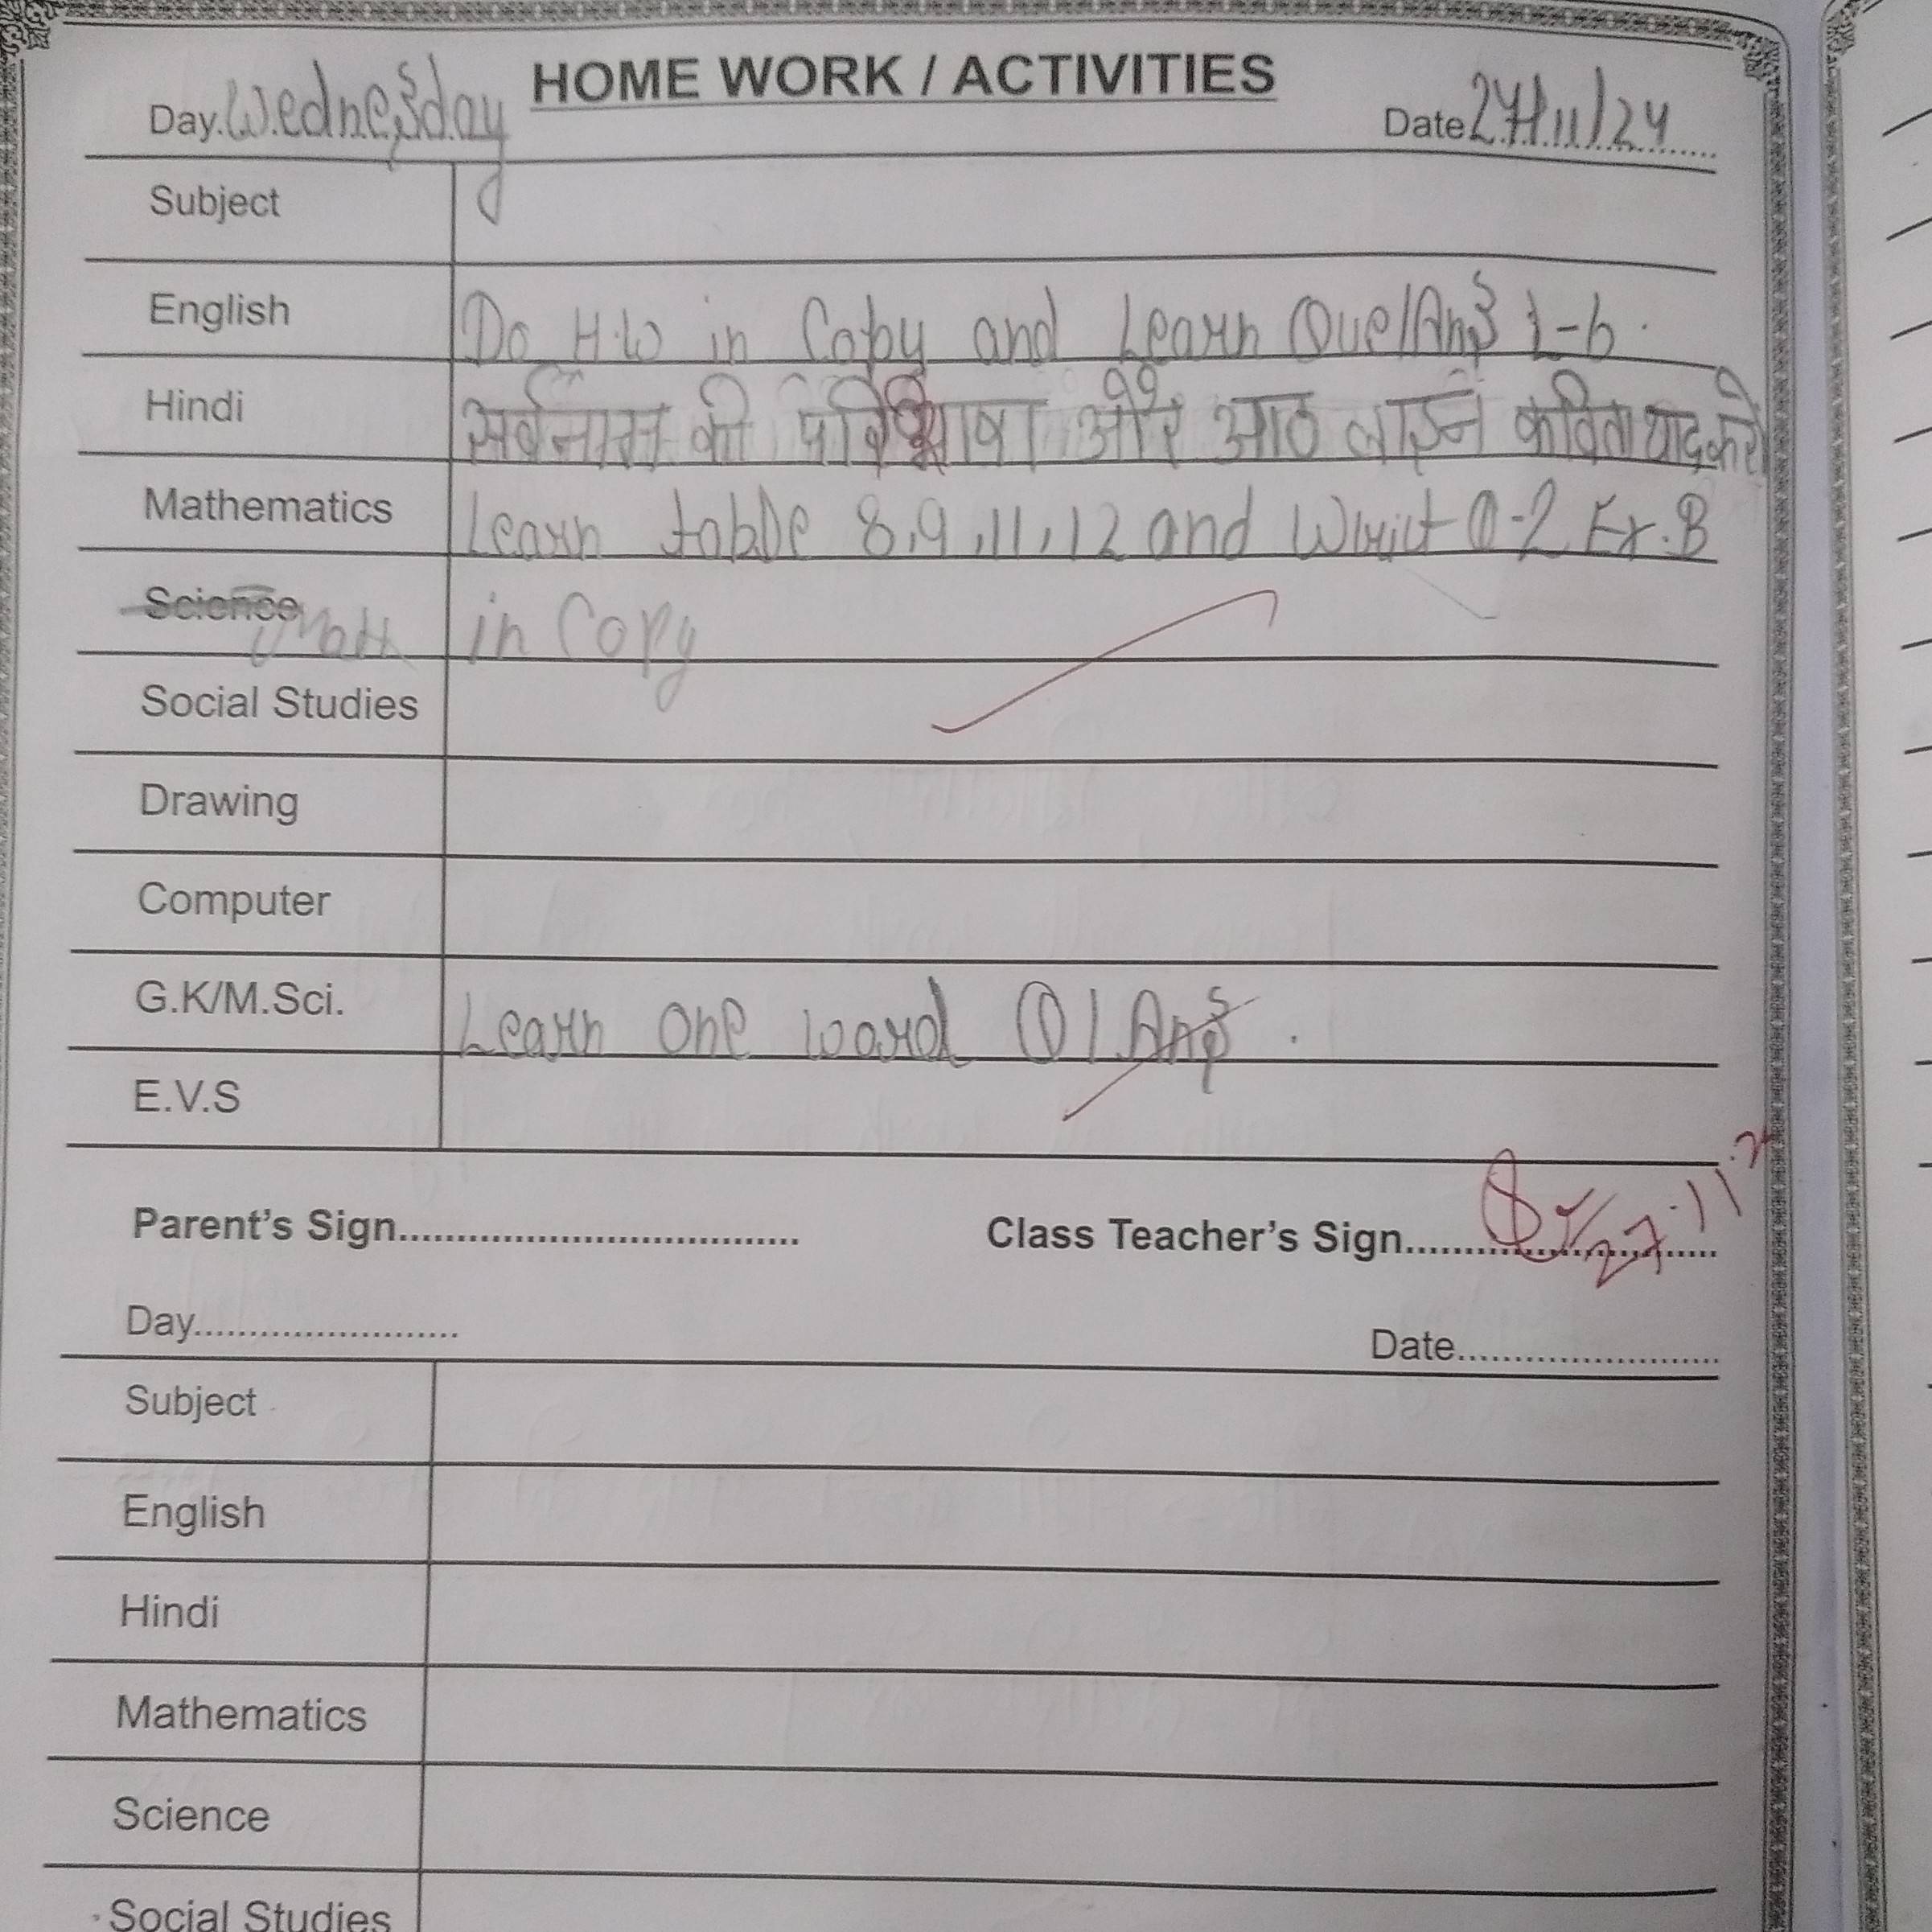 HOME WORK / ACTIVITIES
Day.Wednesday Date27/11/24
Subject
English Do H.W in Copy and Learn Que/Ans 1-6.
Hindi सर्वनाम की परिभाषा और आठ लाइन कविता याद करो
Mathematics Learn table 8,9,11,12 and Writ Q-2 Ex.B
Science Math in Copy
Social Studies
Drawing
Computer
G.K/M.Sci. Learn one word Q/Ans.
E.V.S
Parent's Sign................................... Class Teacher's Sign.......27.11
Day........................ Date........................
Subject
English
Hindi
Mathematics
Science
Social Studies